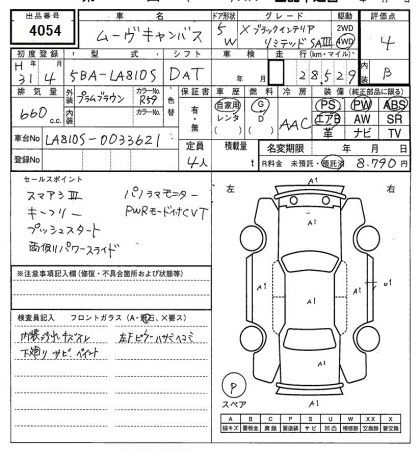 出品番号
4054
車名
ムーヴキャンバス
ドア形状
5
W
グレード
Xブラックインテリア
リミテッド SAⅢ
駆動
2WD
4WD
評価点
4
初度登録
H 31年 4月
型式
5BA-LA810S
シフト
DAT
車検
年 月
走行(km・マイル)
28,529
内装
B
排気量
660 c.c.
外装
プラムブラウン
カラーNo.
R59
内装
カラーNo.
色替
保証書
有・無
車歴
自家用
レンタ
燃料
G
D
冷房
AAC
装備(純正部品に限る)
PS PW ABS
エアB AW SR
革 ナビ TV
車台No
LA810S-0033621
登録No
定員
4人
積載量
t
名変期限 年 月 日
R料金 未預託・預託済 8,790円
セールスポイント
スマアシⅢ
キーフリー
プッシュスタート
両側パワースライド
パノラマモニター
PWRモード付CVT
※注意事項記入欄(修復・不具合箇所および状態等)
検査員記入 フロントガラス(A・飛石、X要ス)
下廻りサビ ペイント
左 右
A1
A1
A1
A1
A1
A1
U1
A1
P
スペア
A B C P S U W X XX
線キズ 要板金 腐蝕 要塗装 サビ 凹凸 補修跡 要交換 交換済